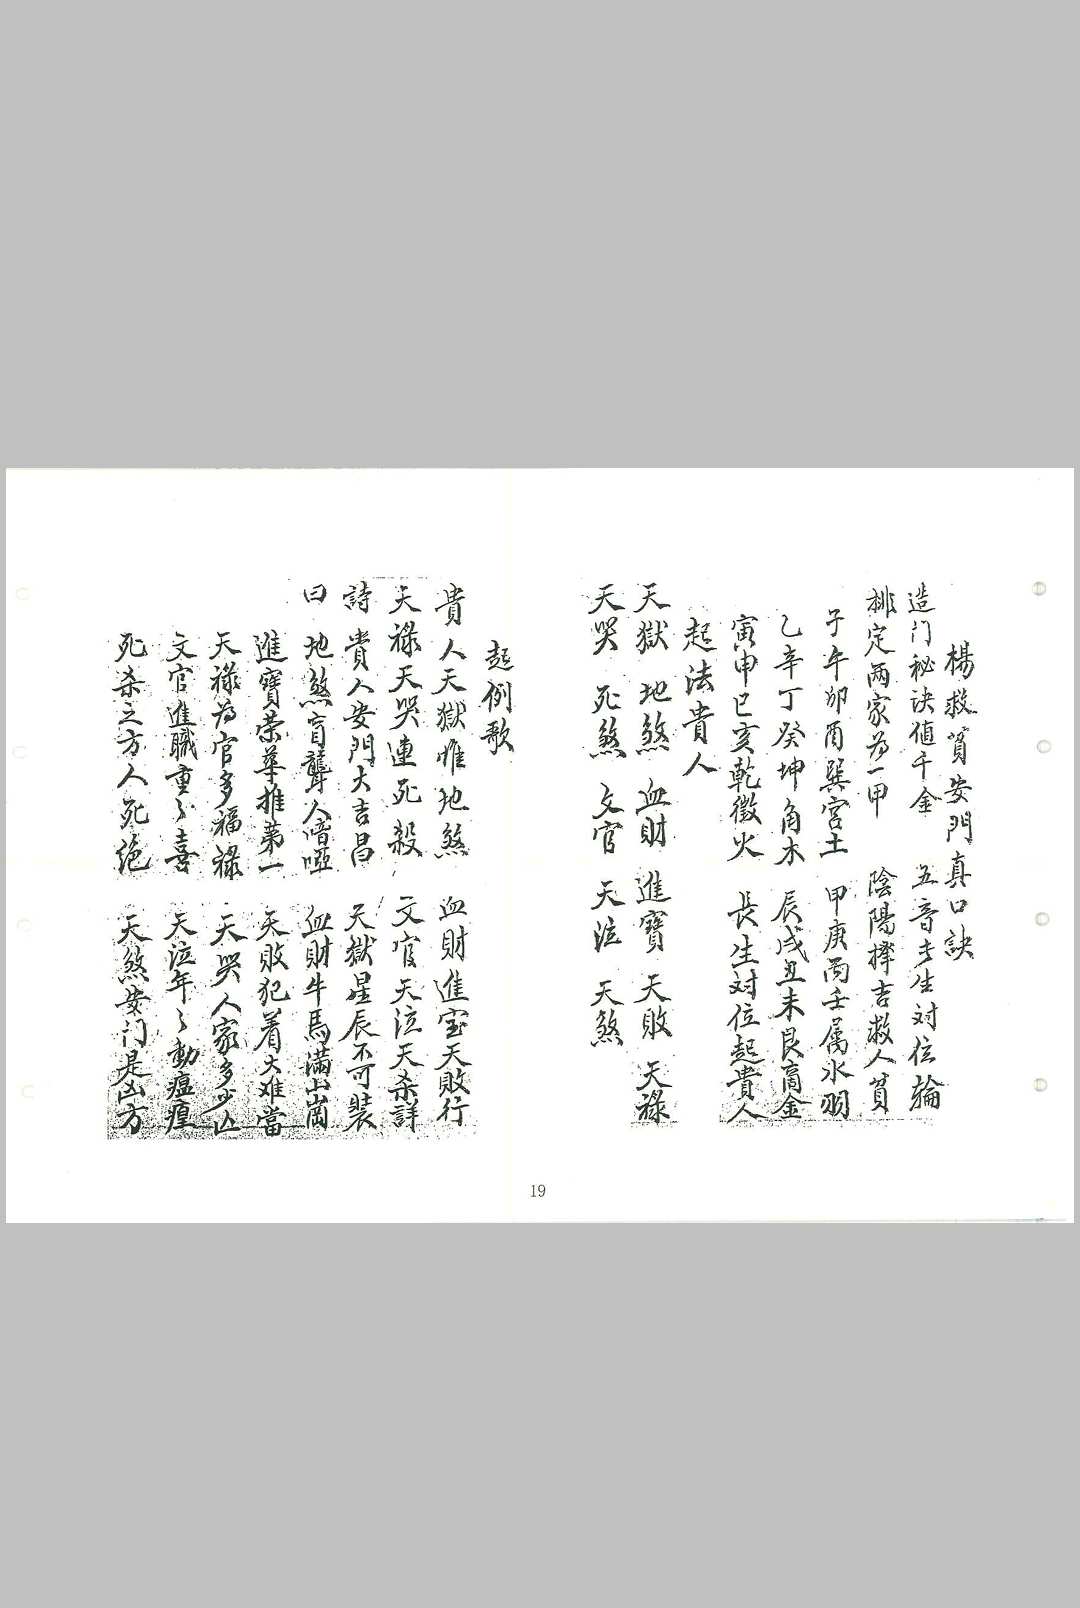 楊救貧安門真口訣
造门秘诀值千金 五音长生对位論
排定两家为一甲 陰陽擇吉救人貧
子午卯酉巽宫土 甲庚丙壬属水羽
乙辛丁癸坤角木 辰戌丑未艮商金
寅申巳亥乾徵火 長生对位起貴人
起法貴人
天獄 地煞 血財 進寶 天敗 天祿
天哭 死煞 文官 天泣 天煞
起例歌
貴人天獄惟地煞 血財進宝天敗行
天祿天哭連死殺 文官天泣天杀詳
詩 貴人安門大吉昌 天獄星辰不可裝
曰 地煞盲聾人喑啞 血財牛馬滿山崗
進寶荣華推第一 天敗犯着大难當
天祿为官多福祿 天哭人家多少凶
文官進職重々喜 天泣年々動瘟瘟
死杀之方人死绝 天煞安门是凶方
19